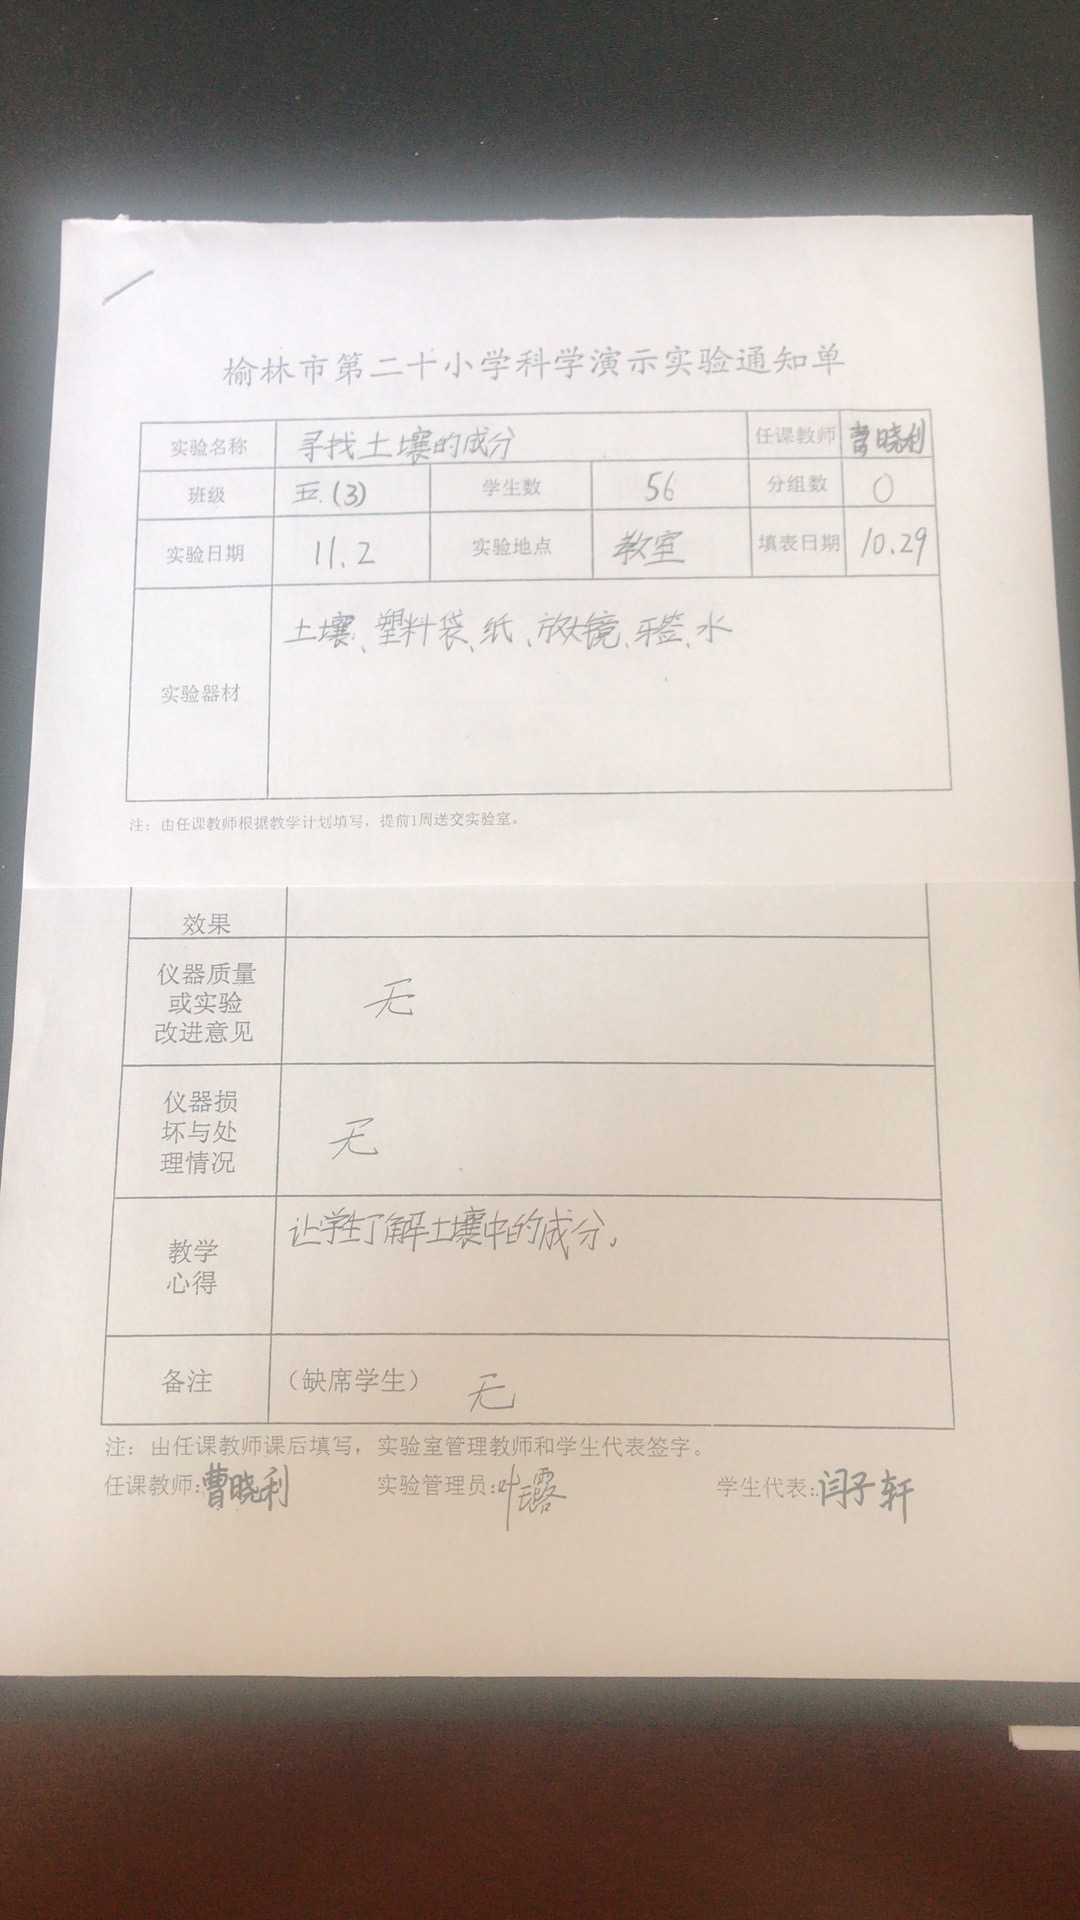 榆林市第二十小学科学演示实验通知单
实验名称 寻找土壤的成分 任课教师 曹晓利
班级 五.(3) 学生数 56 分组数 0
实验日期 11.2 实验地点 教室 填表日期 10.29
土壤、塑料袋、纸、放大镜、牙签、水
实验器材
注：由任课教师根据教学计划填写，提前1周送交实验室。
效果
仪器质量
或实验
改进意见
无
仪器损
坏与处
理情况
无
让学生了解土壤中的成分。
教学
心得
备注 （缺席学生） 无
注：由任课教师课后填写，实验室管理教师和学生代表签字。
任课教师:曹晓利 实验管理员:叶露 学生代表:闫子轩